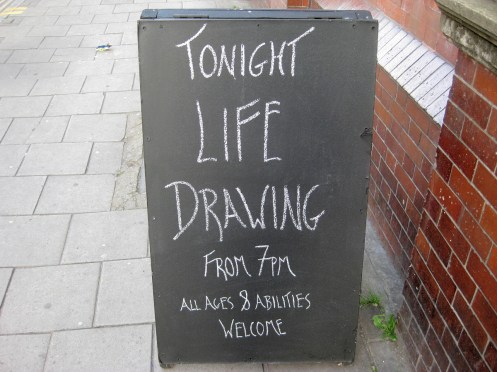 TONIGHT
LIFE
DRAWING
FROM 7PM
ALL AGES & ABILITIES
WELCOME